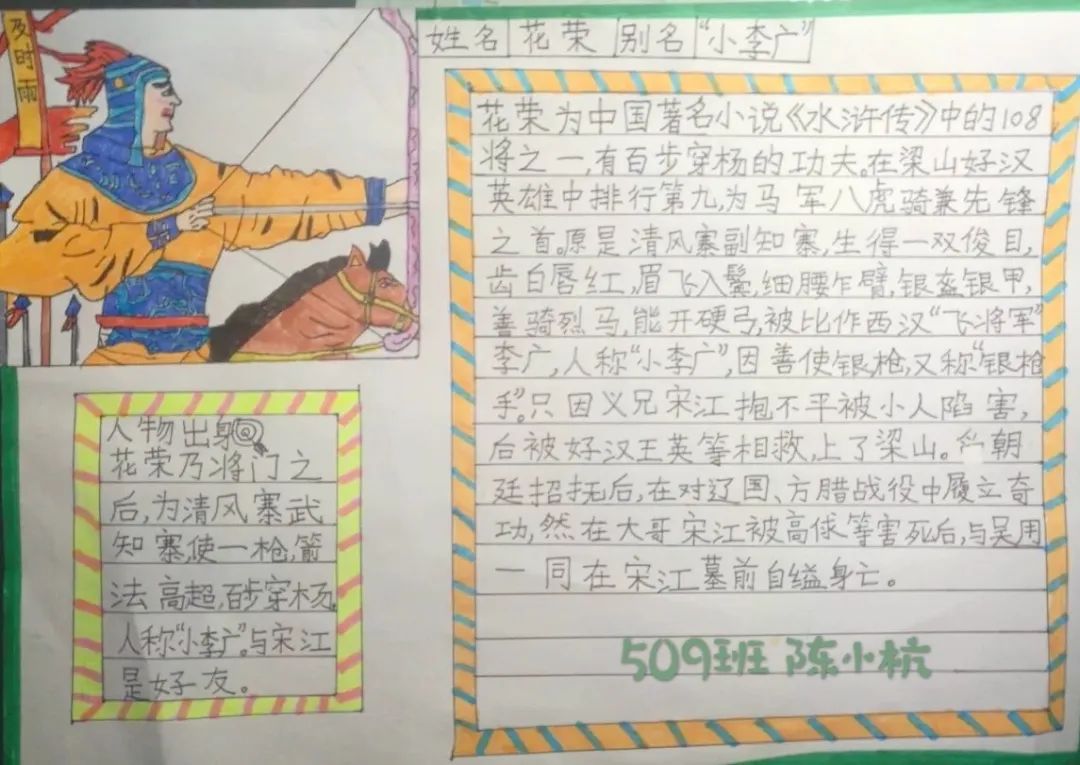 及时雨
姓名 花荣 别名 “小李广”
花荣为中国著名小说《水浒传》中的108
将之一,有百步穿杨的功夫。在梁山好汉
英雄中排行第九,为马军八虎骑兼先锋
之首。原是清风寨副知寨,生得一双俊目,
齿白唇红,眉飞入鬓,细腰乍臂,银盔银甲,
善骑烈马,能开硬弓,被比作西汉“飞将军”
李广,人称“小李广”,因善使银枪,又称“银枪
手”。只因义兄宋江抱不平被小人陷害,
后被好汉王英等相救,上了梁山。朝
廷招抚后,在对辽国、方腊战役中履立奇
功,然在大哥宋江被高俅等害死后,与吴用
一同在宋江墓前自缢身亡。
509班 陈小杭
人物出身
花荣乃将门之
后,为清风寨武
知寨,使一枪,箭
法高超,百步穿杨,
人称“小李广”。与宋江
是好友。